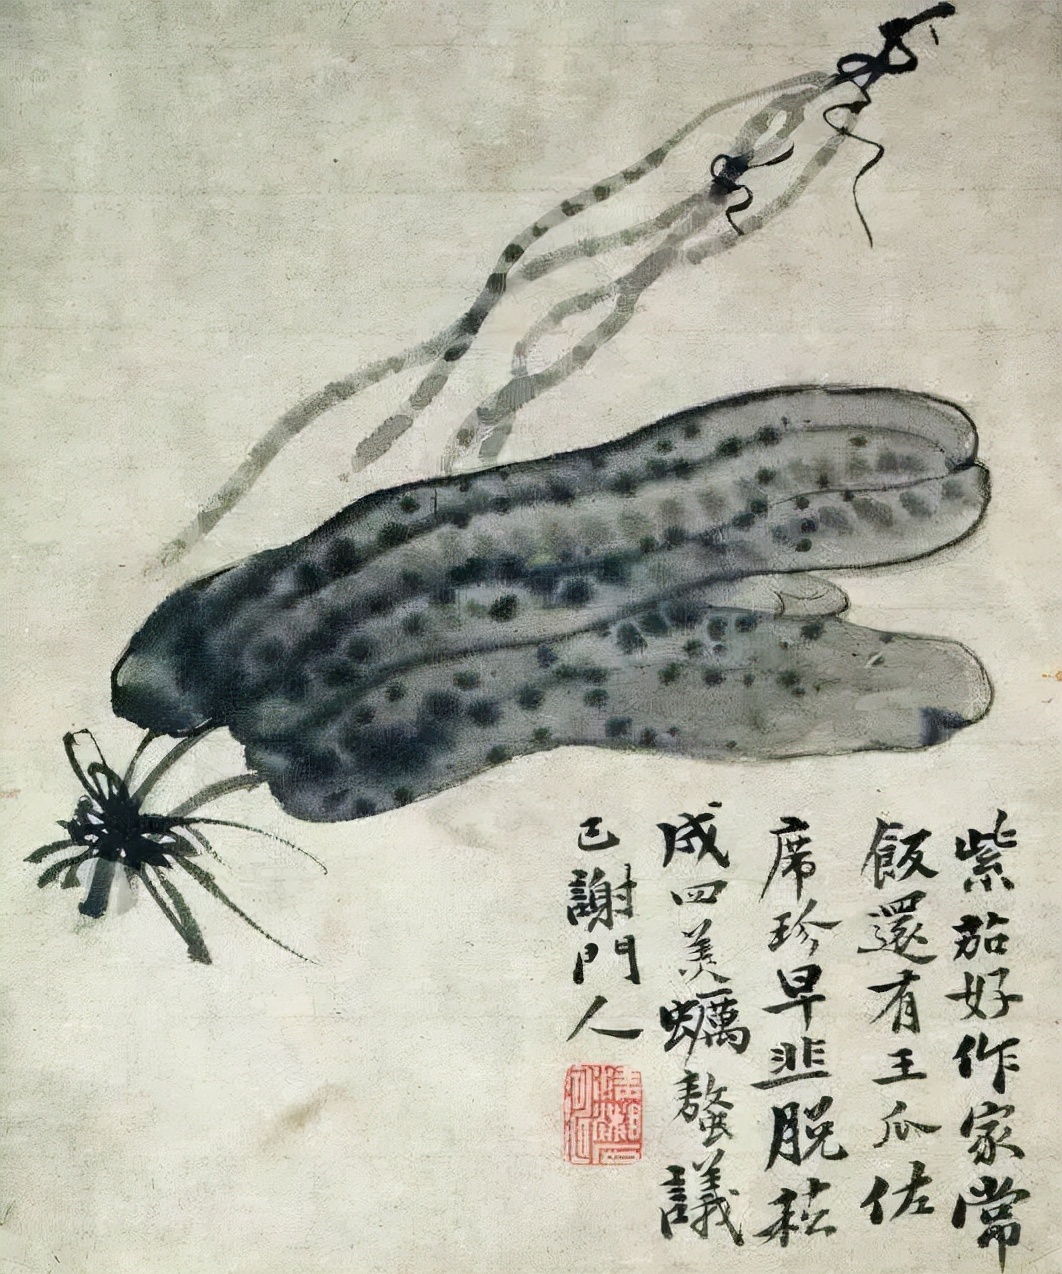 紫茄好作家常
飯還有王瓜佐
席珍早韭脫菘
成四美蠣螯議
已謝門人